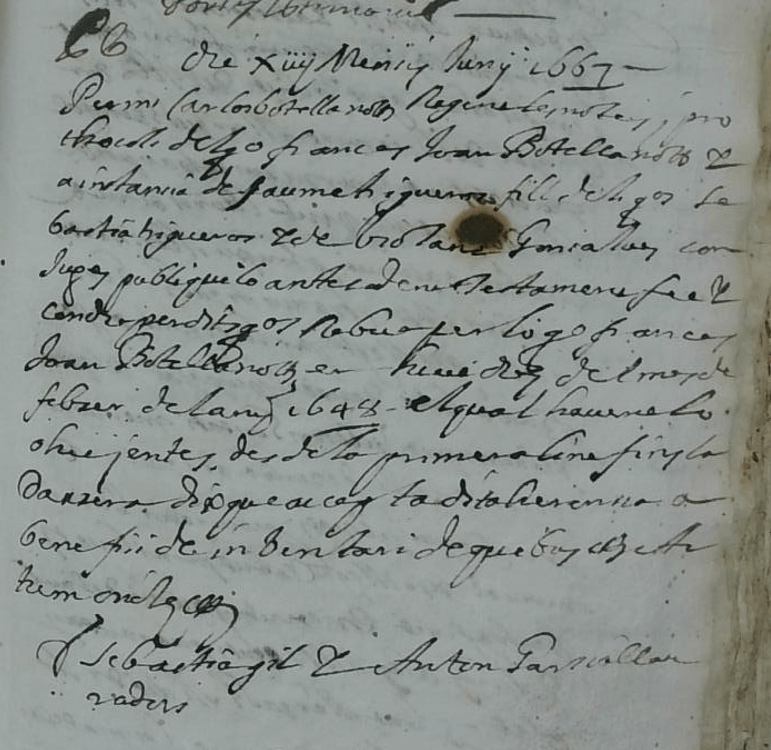 die xiiij Mensis Junij 1667
Per mi Carlos botella not Regint les notes, i pro
thocols del qo frances Joan Botella not y
a instancia de Jaume higueros fill del qos Se
bastia higueros y de violant Gonsalves con
juges publiqui lo antecedent testament fet y
per dits qos Rebut per lo qo frances
Joan Botella not en huit dies del mes de
febrer del any 1648 - el qual havent lo
ohit j entes des de la primera linea fins la
darrera dix que accepta dita herensia a
benefisi de inventari de que
Sebastia gil y Anton Garcia llau
radors